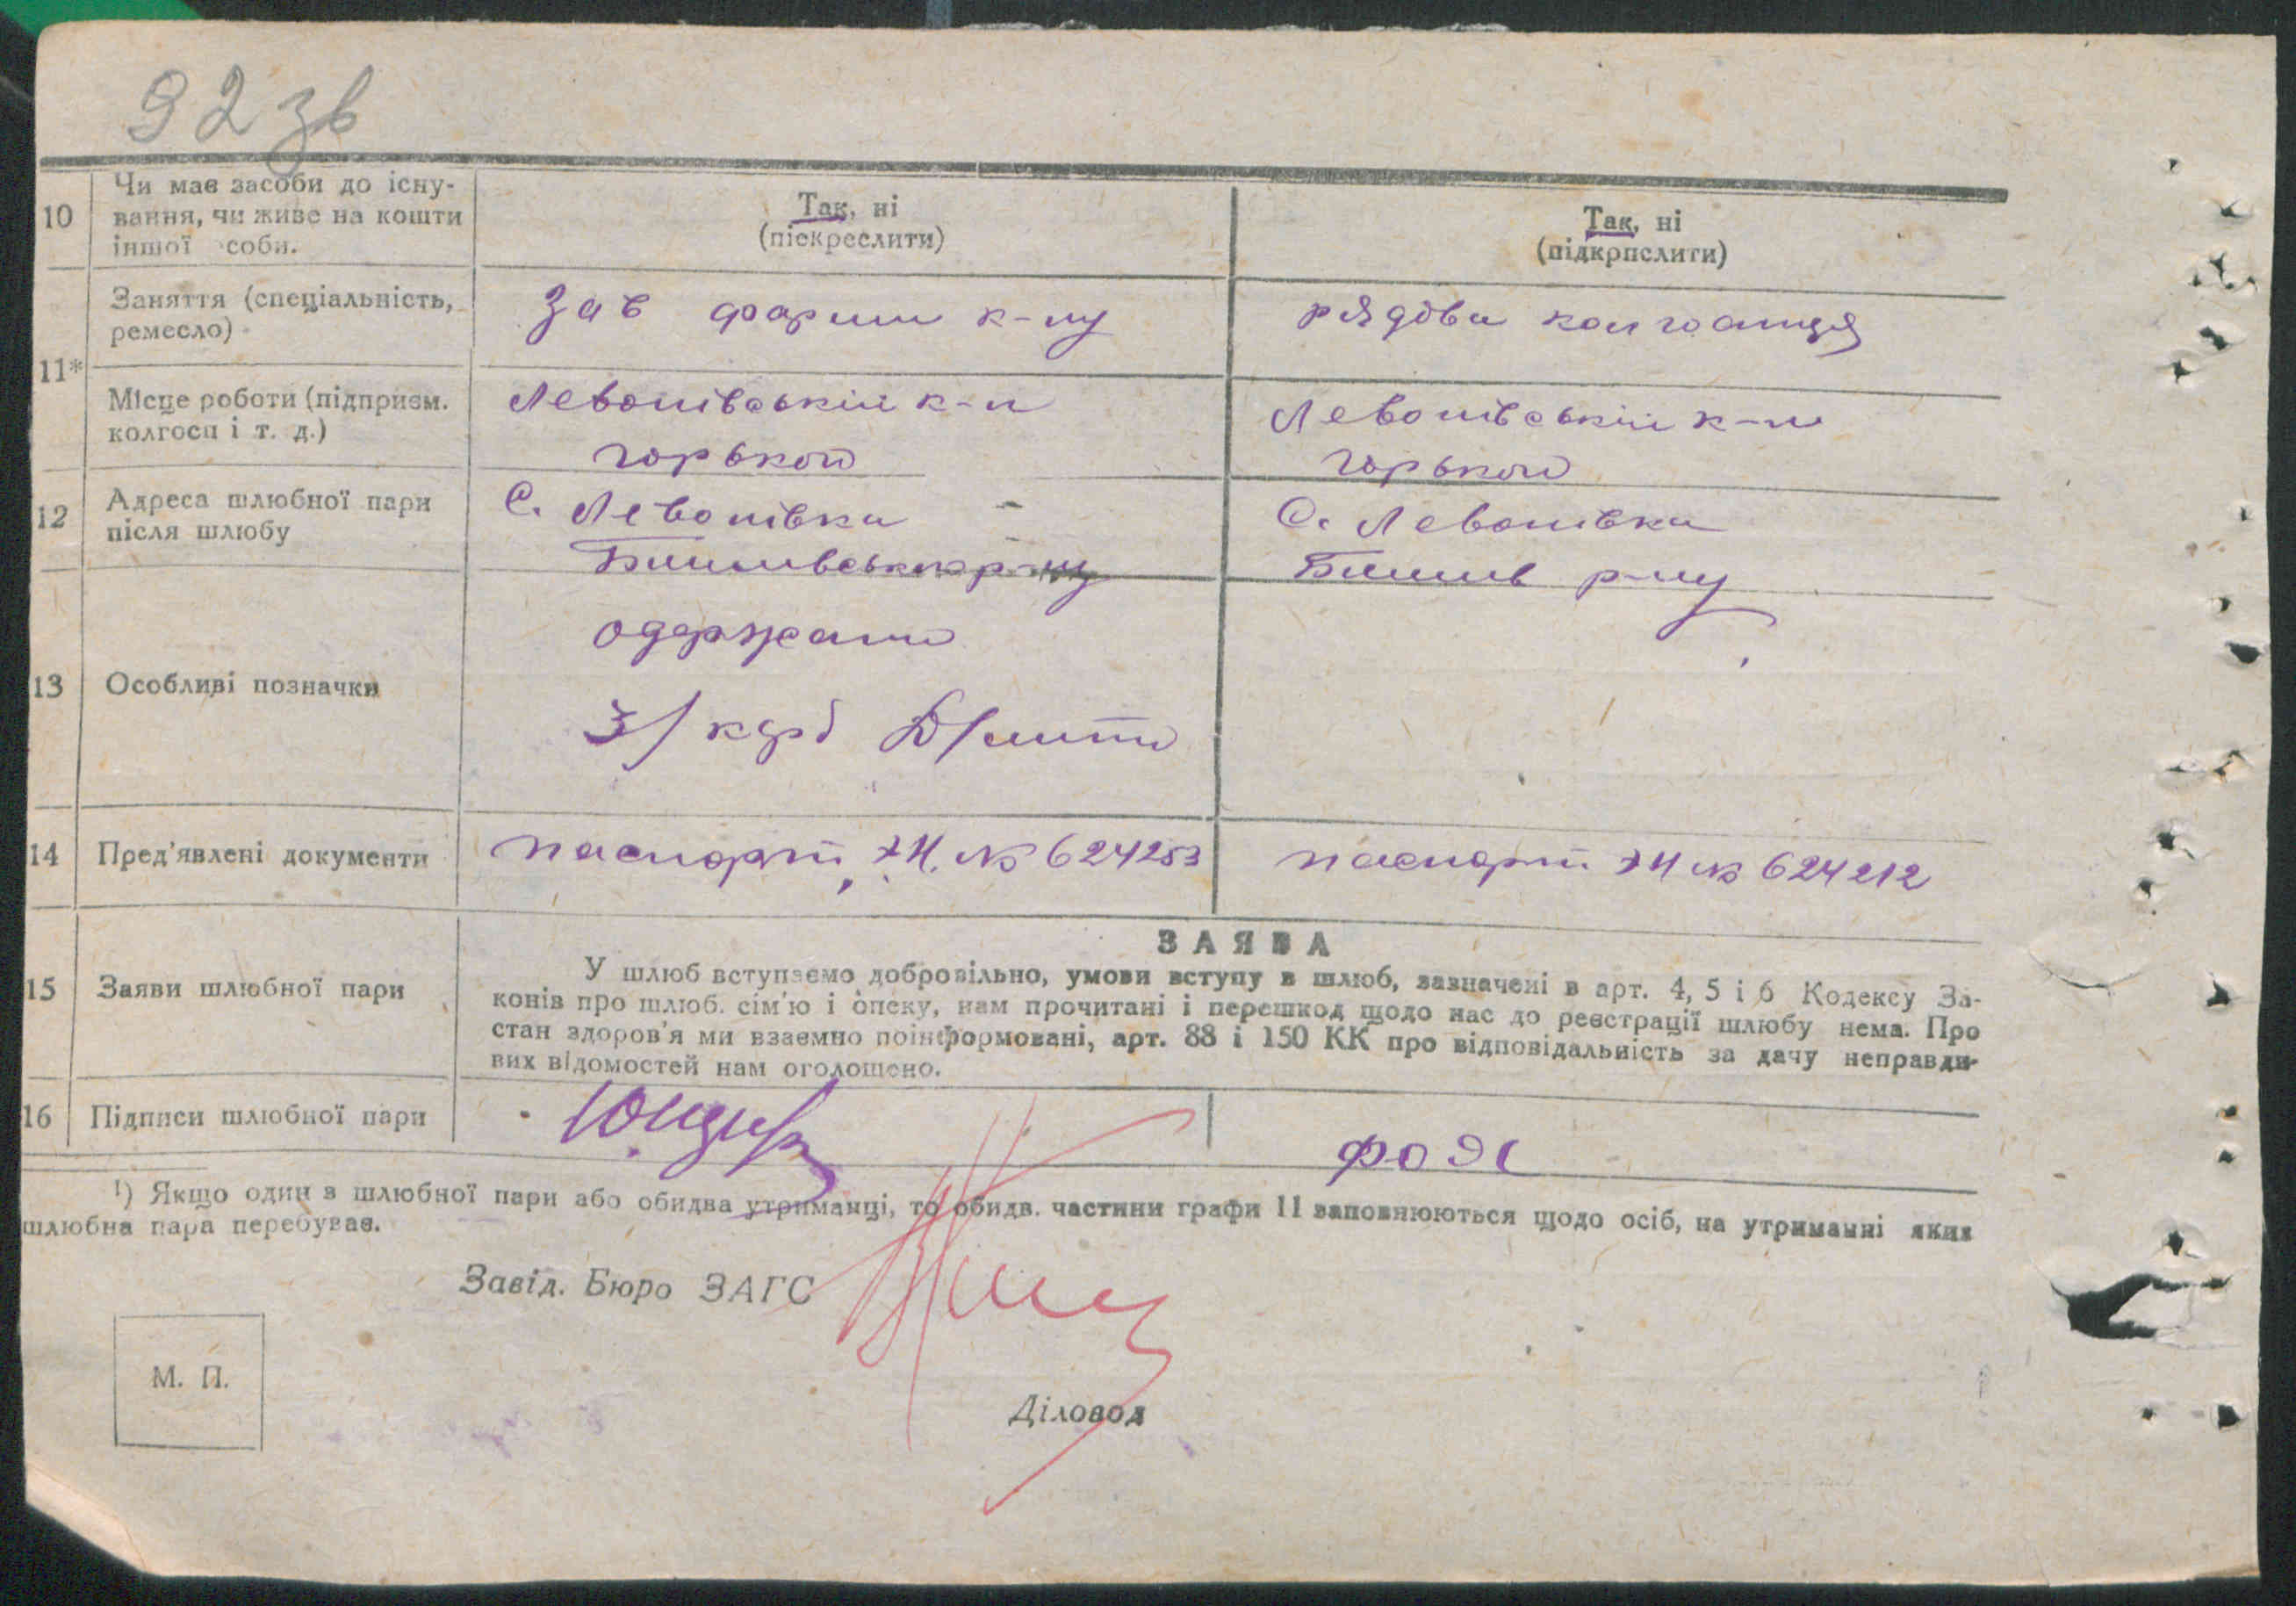 92 зв
10 Чи має засоби до існу-
вання, чи живе на кошти
іншої особи.
Так, ні
(піскреслити)
Так, ні
(підкрпслити)
11*
Заняття (спеціальність,
ремесло)
Зав ферми к-пу
рядова колгоспниця
Місце роботи (підприєм.
колгосп і т. д.)
к-п
Горького
к-п
Горького
12 Адреса шлюбної пари
після шлюбу
С.
р-ну
С.
р-ну
13 Особливі позначки
одержали
14 Пред'явлені документи
паспорт № 624253
паспорт № 624212
15 Заяви шлюбної пари
ЗАЯВА
У шлюб вступаємо добровільно, умови вступу в шлюб, зазначені в арт. 4, 5 і 6 Кодексу За-
конів про шлюб. сім'ю і опеку, нам прочитані і перешкод щодо нас до реєстрації шлюбу нема. Про
стан здоров'я ми взаємно поінформовані, арт. 88 і 150 КК про відповідальність за дачу неправди-
вих відомостей нам оголошено.
16 Підписи шлюбної пари
¹) Якщо один з шлюбної пари або обидва утриманці, то обидв. частини графи 11 заповнюються щодо осіб, на утриманні яких
шлюбна пара перебуває.
Завід. Бюро ЗАГС
М. П.
Діловод